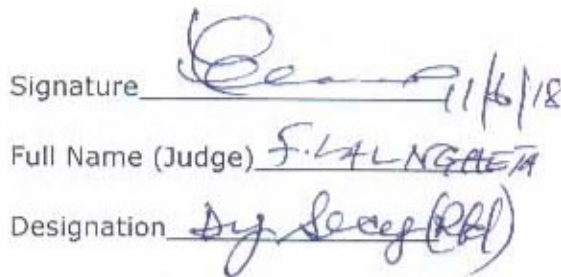 Signature 11/6/18
Full Name (Judge) F. LALNGAETA
Designation Dy Secy (Rtd)